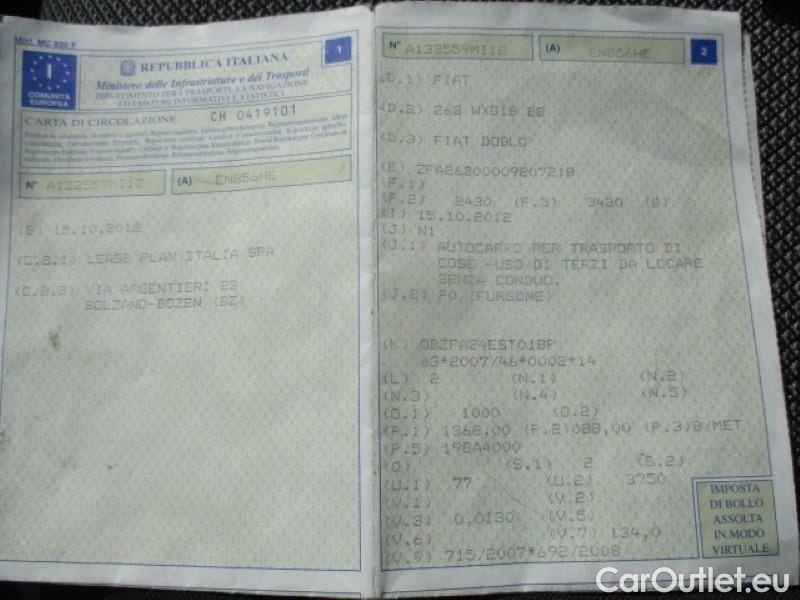 Mod. MC 820 F
1
I
COMUNITÀ
EUROPEA
REPUBBLICA ITALIANA
Ministero delle Infrastrutture e dei Trasporti
DIPARTIMENTO PER I TRASPORTI, LA NAVIGAZIONE
ED I SISTEMI INFORMATIVI E STATISTICI
CARTA DI CIRCOLAZIONE CH 0419101
N° A133559MI12 (A) EN856HE
(B) 15.10.2012
(C.2.1) LEASE PLAN ITALIA SPA
(C.2.3) VIA ARGENTIERI 23
BOLZANO-BOZEN (BZ)
N° A133559MI12 (A) EN856HE 2
(D.1) FIAT
(D.2) 263 WXG1B BB
(D.3) FIAT DOBLO'
(E) ZFA26300009207218
(F.1)
(F.2) 2430 (F.3) 3430 (G)
(I) 15.10.2012
(J) N1
(J.1) AUTOCARRO PER TRASPORTO DI
COSE -USO DI TERZI DA LOCARE
SENZA CONDUC.
(J.2) F0 (FURGONE)
(K) OBZFA24EST01BP
e3*2007/46*0002*14
(L) 2 (N.1) (N.2)
(N.3) (N.4) (N.5)
(O.1) 1000 (O.2)
(P.1) 1368,00 (P.2)088,00 (P.3)B/MET
(P.5) 198A4000
(Q) (S.1) 2 (S.2)
(U.1) 77 (U.2) 3750
(V.1) (V.2)
(V.3) 0,0130 (V.5)
(V.6) (V.7) 134,0
(V.9) 715/2007*692/2008
IMPOSTA
DI BOLLO
ASSOLTA
IN MODO
VIRTUALE
CarOutlet.eu